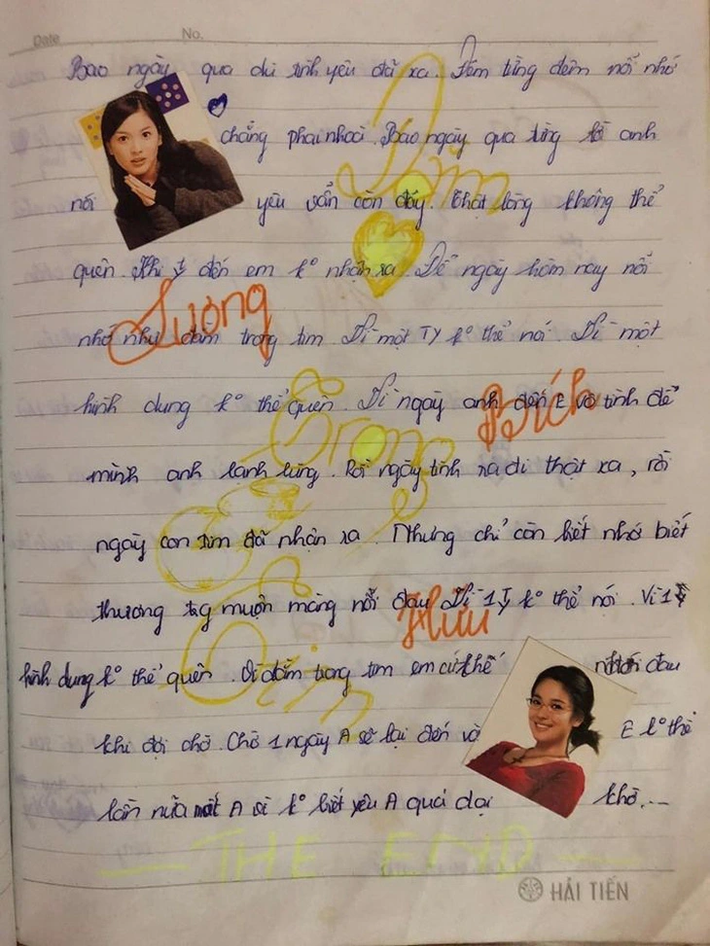 Date No.
Bao ngày qua dù tình yêu đã xa. Đêm từng đêm nỗi nhớ
chẳng phai nhoà. Bao ngày qua từng lời anh
nói yêu vẫn còn đây. Thật lòng không thể
quên. Khi ty đến em ko nhận ra. Để ngày hôm nay nỗi
nhớ như đâm trong tim. Vì một TY ko thể nói. Vì một
hình dung ko thể quên. Vì ngày anh đến E vô tình để
mình anh lạnh lùng. Rồi ngày tình ra đi thật xa, rồi
ngày con tim đã nhận ra. Nhưng chỉ còn biết nhớ biết
thương tg muộn màng nỗi đau. Vì 1 Ty ko thể nói. Vì 1
hình dung ko thể quên. Vì dằm trong tim em cứ thế nhói đau
khi đợi chờ. Chờ 1 ngày A sẽ lại đến và E ko thể
lần nữa mất A vì ko biết yêu A quá dại khờ...
Dằm
Trong
Tim
Lương
Bích
Hữu
THE END
HẢI TIẾN